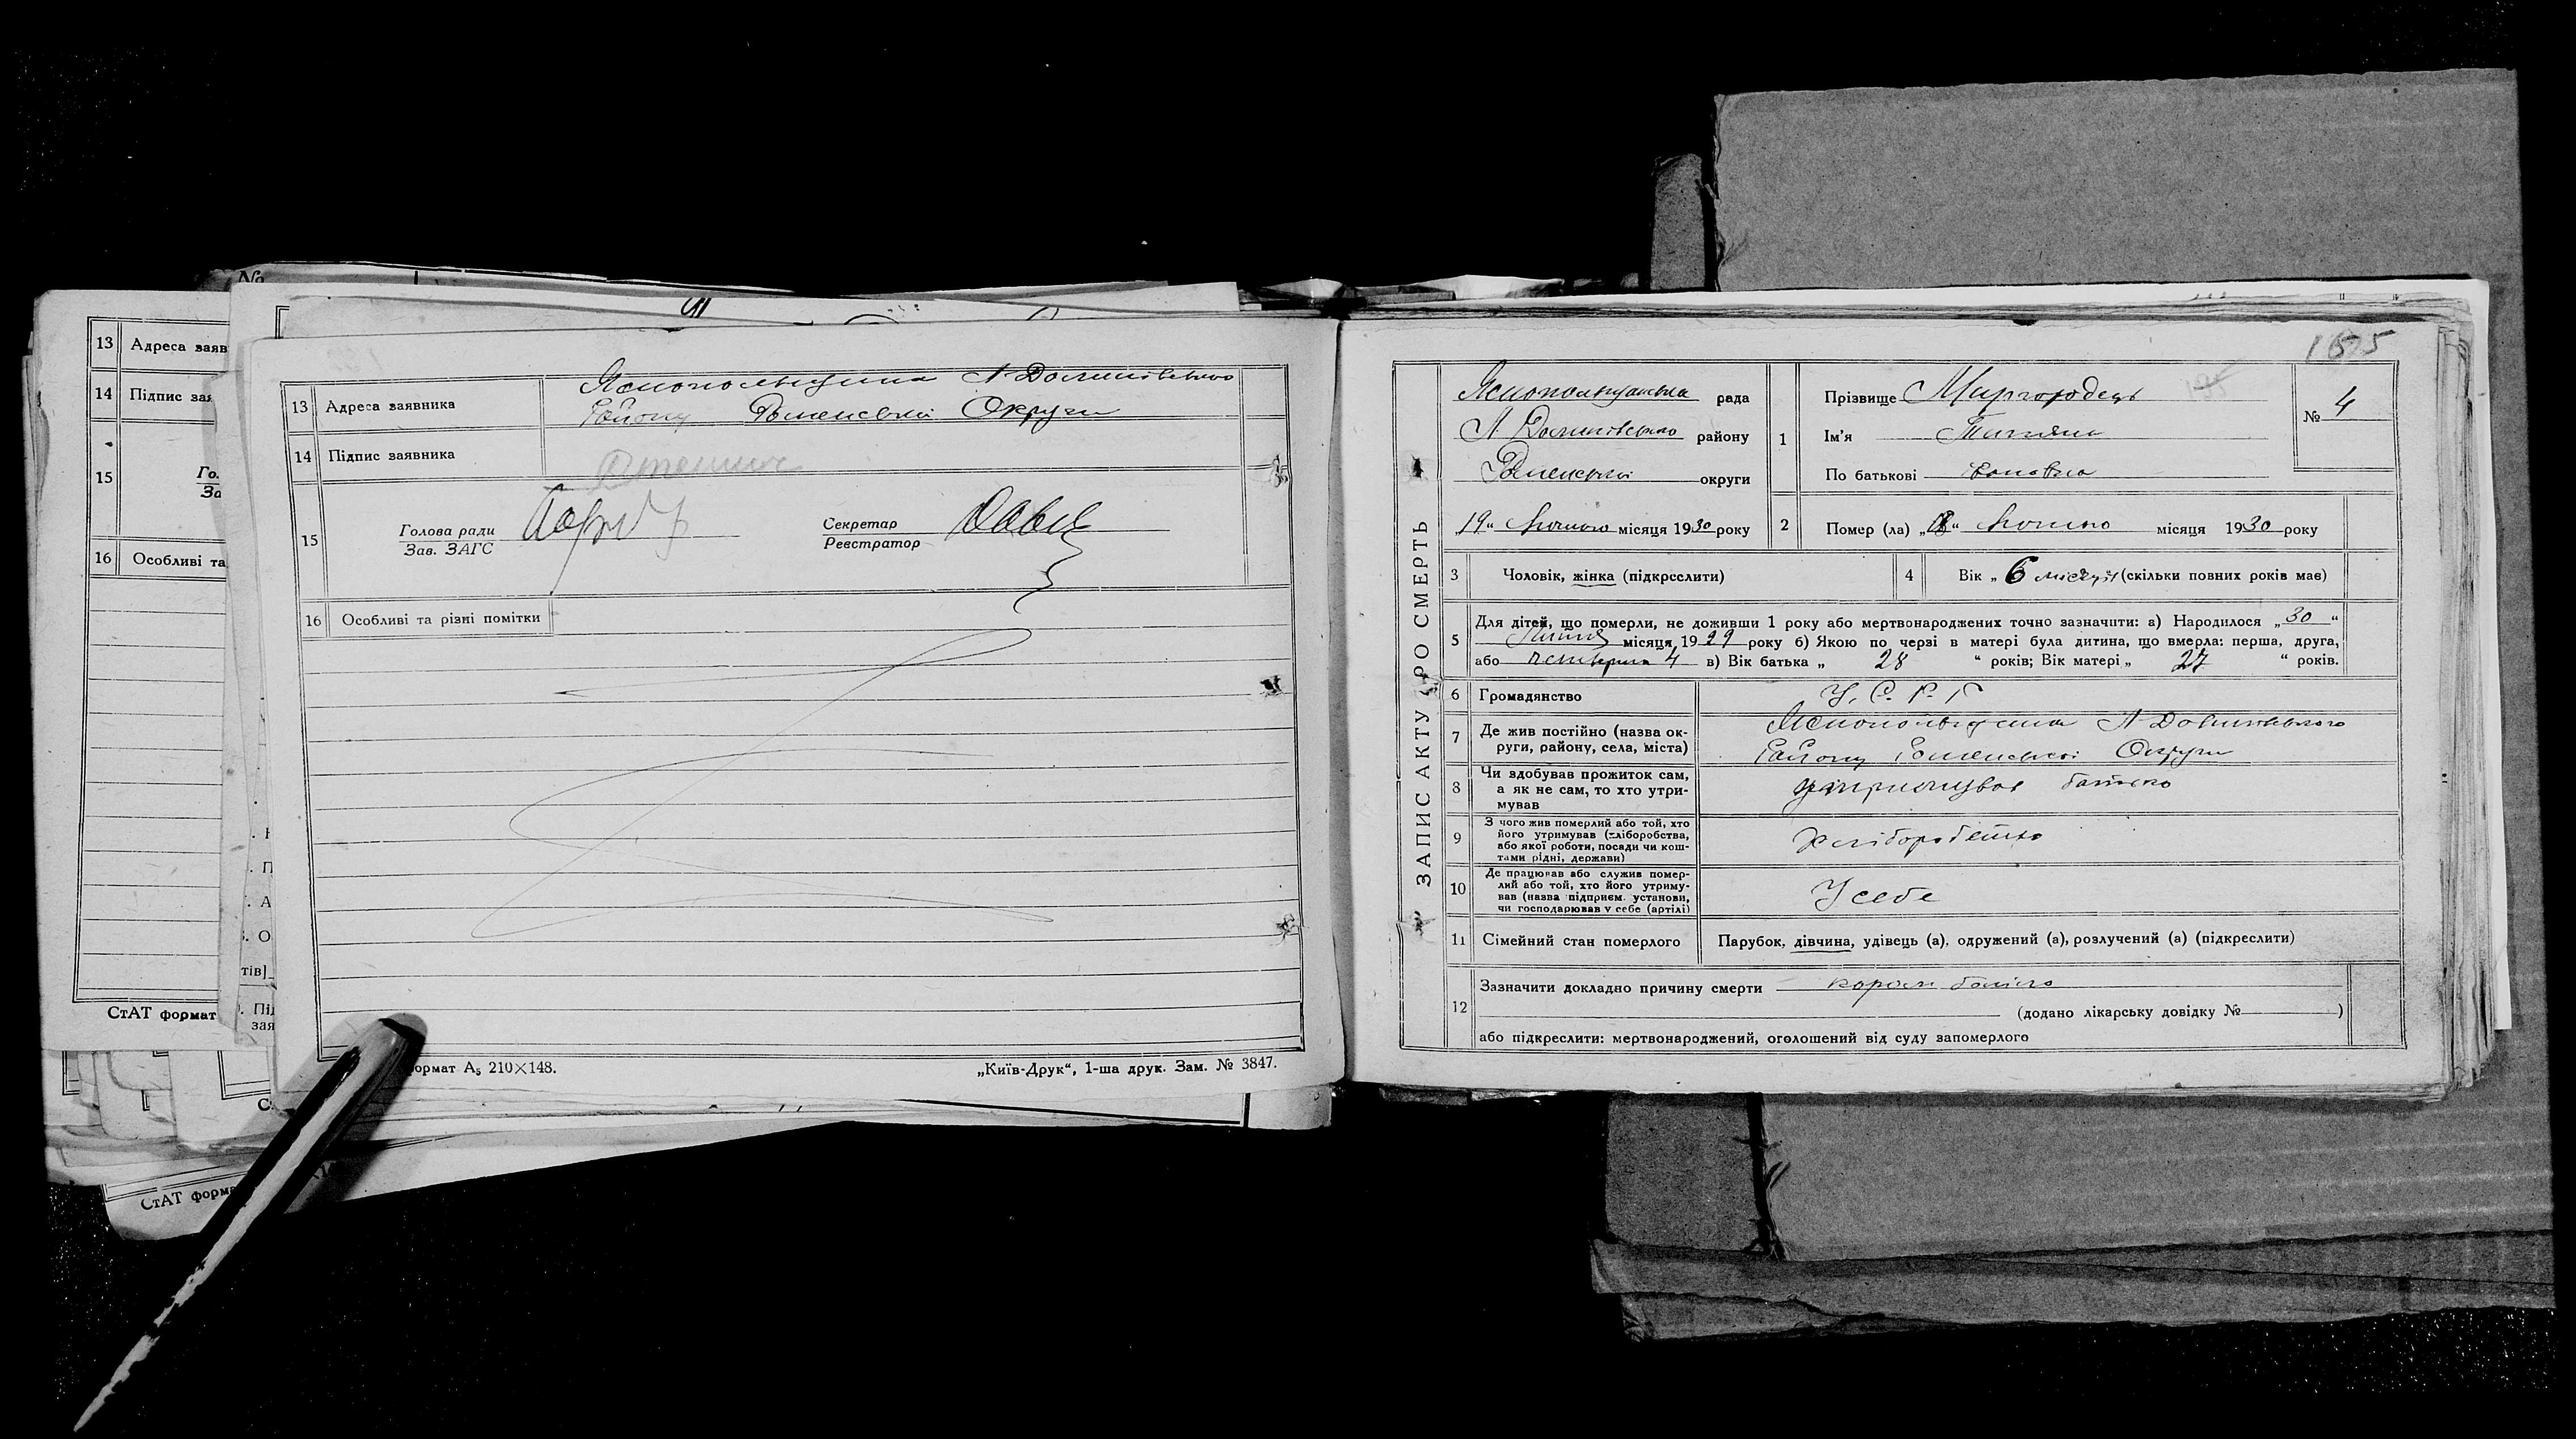 №
13 Адреса заяв
14 Підпис зая
15 Го.
За
16 Особливі та
тів]
. Під
зая
СтАТ формат
СтАТ форма
13 Адреса заявника Яснопольщина Л-Долинського
району Роменської Округи
14 Підпис заявника
15 Голова ради
Зав. ЗАГС
Секретар
Реєстратор
16 Особливі та різні помітки
ормат А5 210×148.
„Київ-Друк“, 1-ша друк. Зам. № 3847.
1575
ЗАПИС АКТУ ПРО СМЕРТЬ
Яснопольщанська рада
Л. Долинського району
Роменської округи
„19“ Лютого місяця 1930 року
1 Прізвище Миргородець
Ім'я Тетяна
По батькові
№ 4
2 Помер (ла) „18“ Лютого місяця 1930 року
3 Чоловік, жінка (підкреслити)
4 Вік „ 6 місяців (скільки повних років має)
5 Для дітей, що померли, не доживши 1 року або мертвонароджених точно зазначити: а) Народилося „30“
місяця 1929 року б) Якою по черзі в матері була дитина, що вмерла: перша, друга,
або четверта 4 в) Вік батька „ 28 “ років; Вік матері „ 27 “ років.
6 Громадянство У. С. Р. Р
7 Де жив постійно (назва округи, району, села, міста) Яснопольщина Л-Долинського
району Роменської Округи
8 Чи здобував прожиток сам,
а як не сам, то хто утри-
мував
утримував батько
9 З чого жив померлий або той, хто
його утримував (хліборобства,
або якої роботи, посади чи кош-
тами рідні, держави)
Хліборобство
10 Де працював або служив помер-
лий або той, хто його утриму-
вав (назва підприєм. установи,
чи господарював у себе (артілі)
У себе
11 Сімейний стан померлого Парубок, дівчина, удівець (а), одружений (а), розлучений (а) (підкреслити)
12 Зазначити докладно причину смерти
(додано лікарську довідку № )
або підкреслити: мертвонароджений, оголошений від суду запомерлого